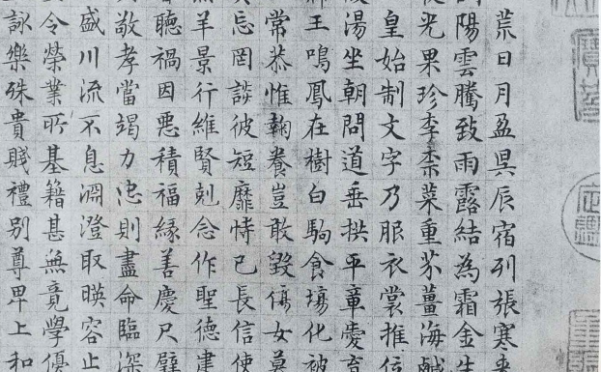 荒日月盈昃辰宿列張寒來
陽雲騰致雨露結為霜金生
光果珍李柰菜重芥薑海鹹
皇始制文字乃服衣裳推位
湯坐朝問道垂拱平章愛育
王鳴鳳在樹白駒食場化被
常恭惟鞠養豈敢毀傷女慕
忘罔談彼短靡恃己長信使
羊景行維賢剋念作聖德建
聽禍因惡積福緣善慶尺璧
敬孝當竭力忠則盡命臨深
盛川流不息淵澄取暎容止
令榮業所基籍甚無竟學優
詠樂殊貴賤禮別尊卑上和